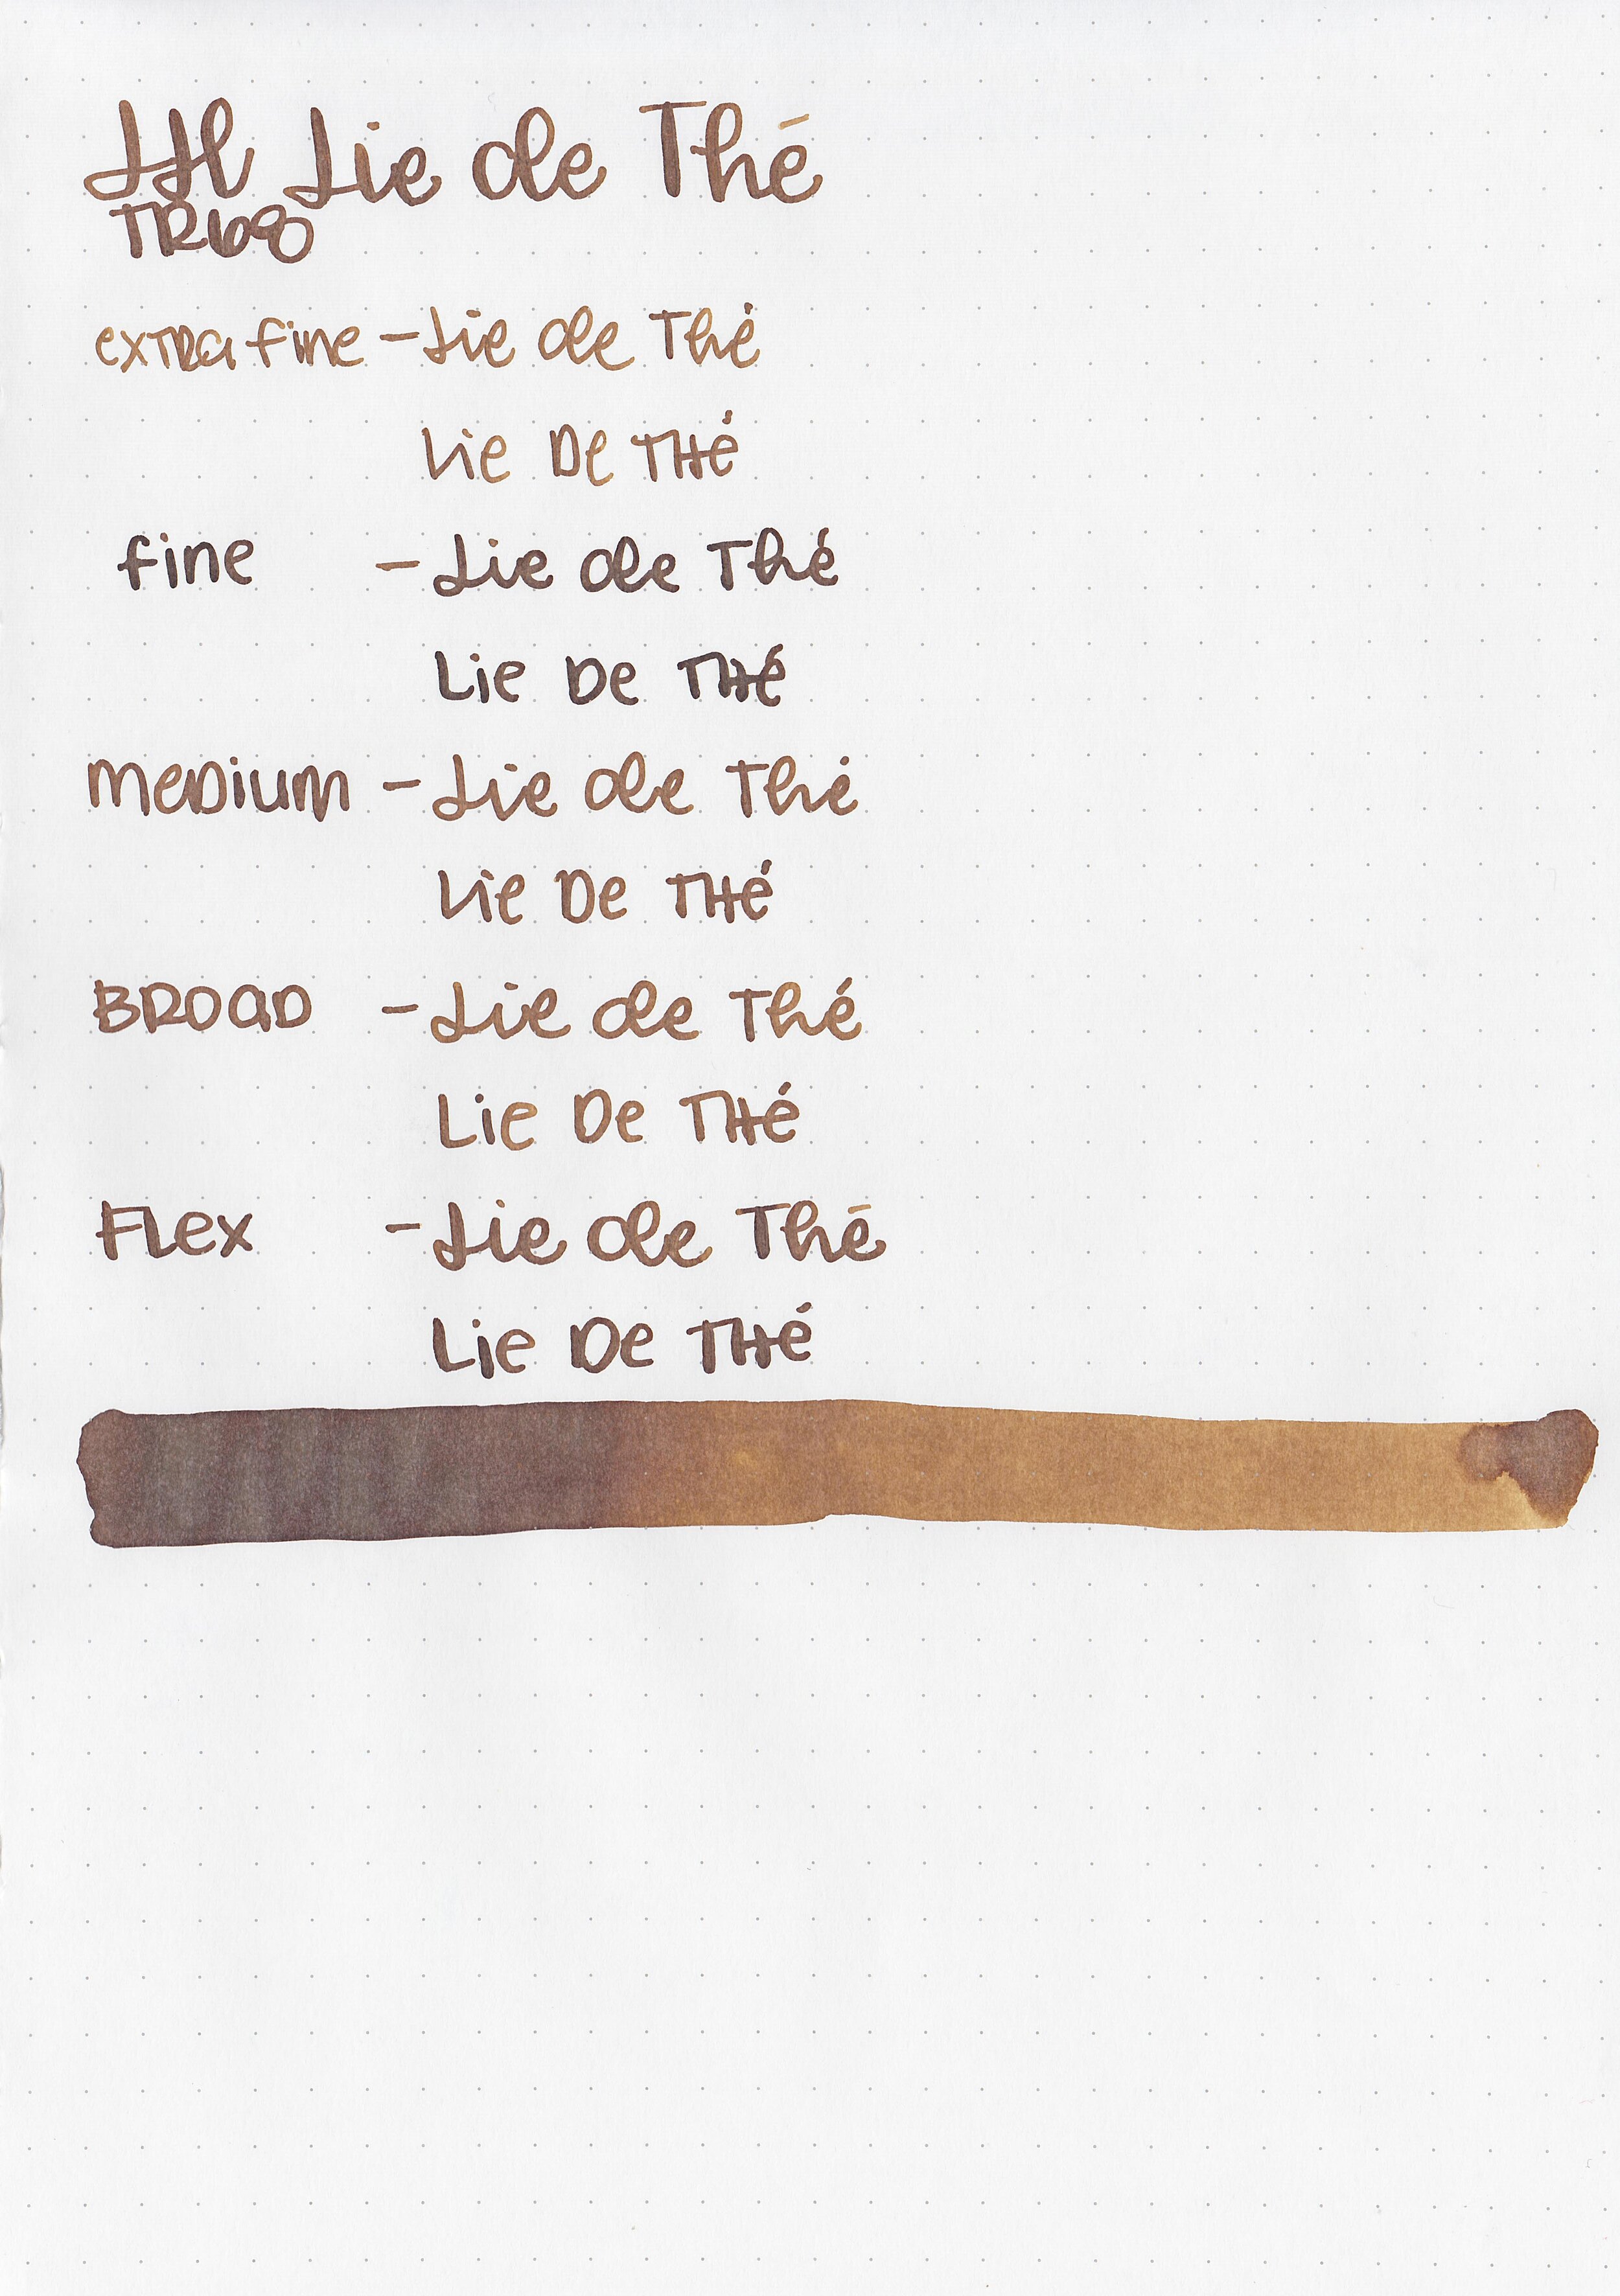 JH Lie de Thé
TR68
extra fine - Lie de Thé
Lie De THé
fine - Lie de Thé
Lie De THé
meDium - Lie de Thé
Lie De THé
BROaD - Lie de Thé
Lie De THé
FLex - Lie de Thé
Lie De THé